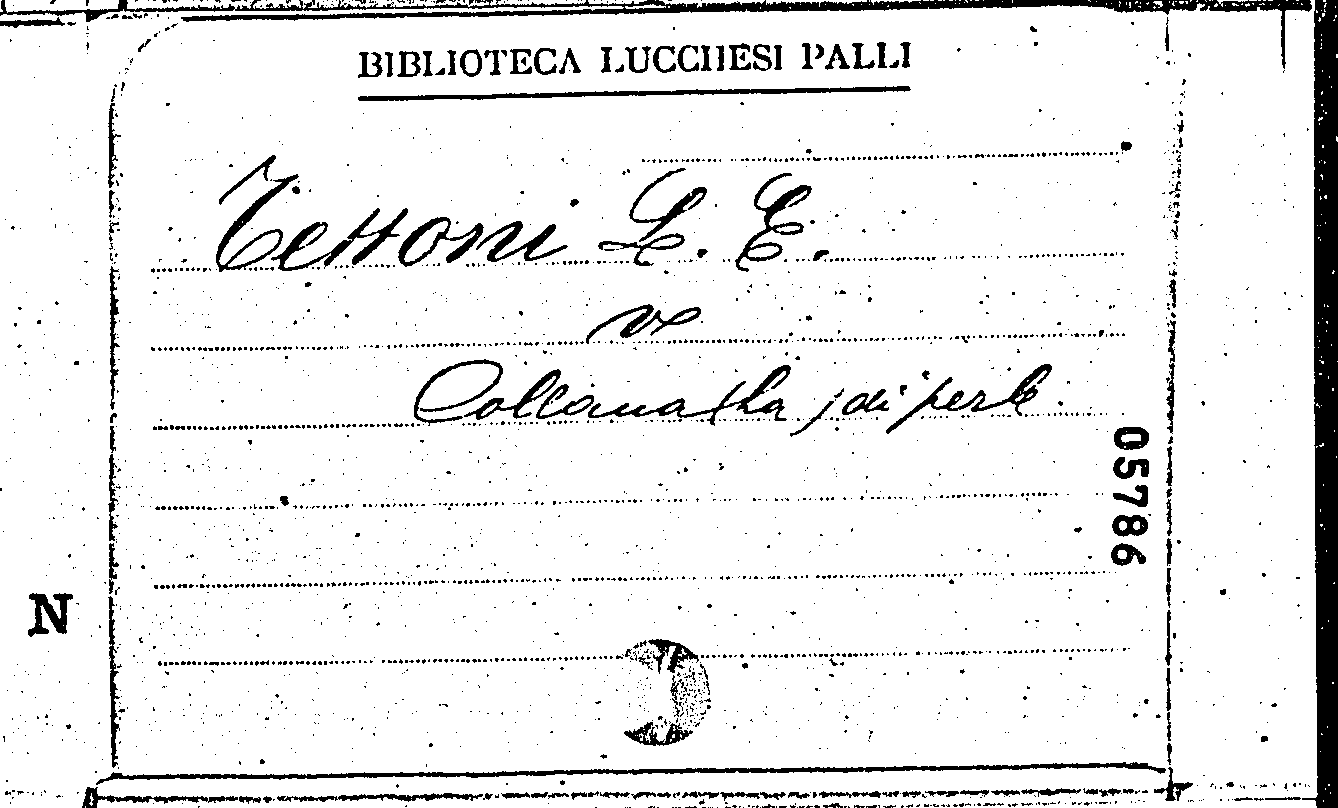 BIBLIOTECA LUCCHESI PALLI
Tettoni L. E.
ve
Collana (La) di perle
05786
N